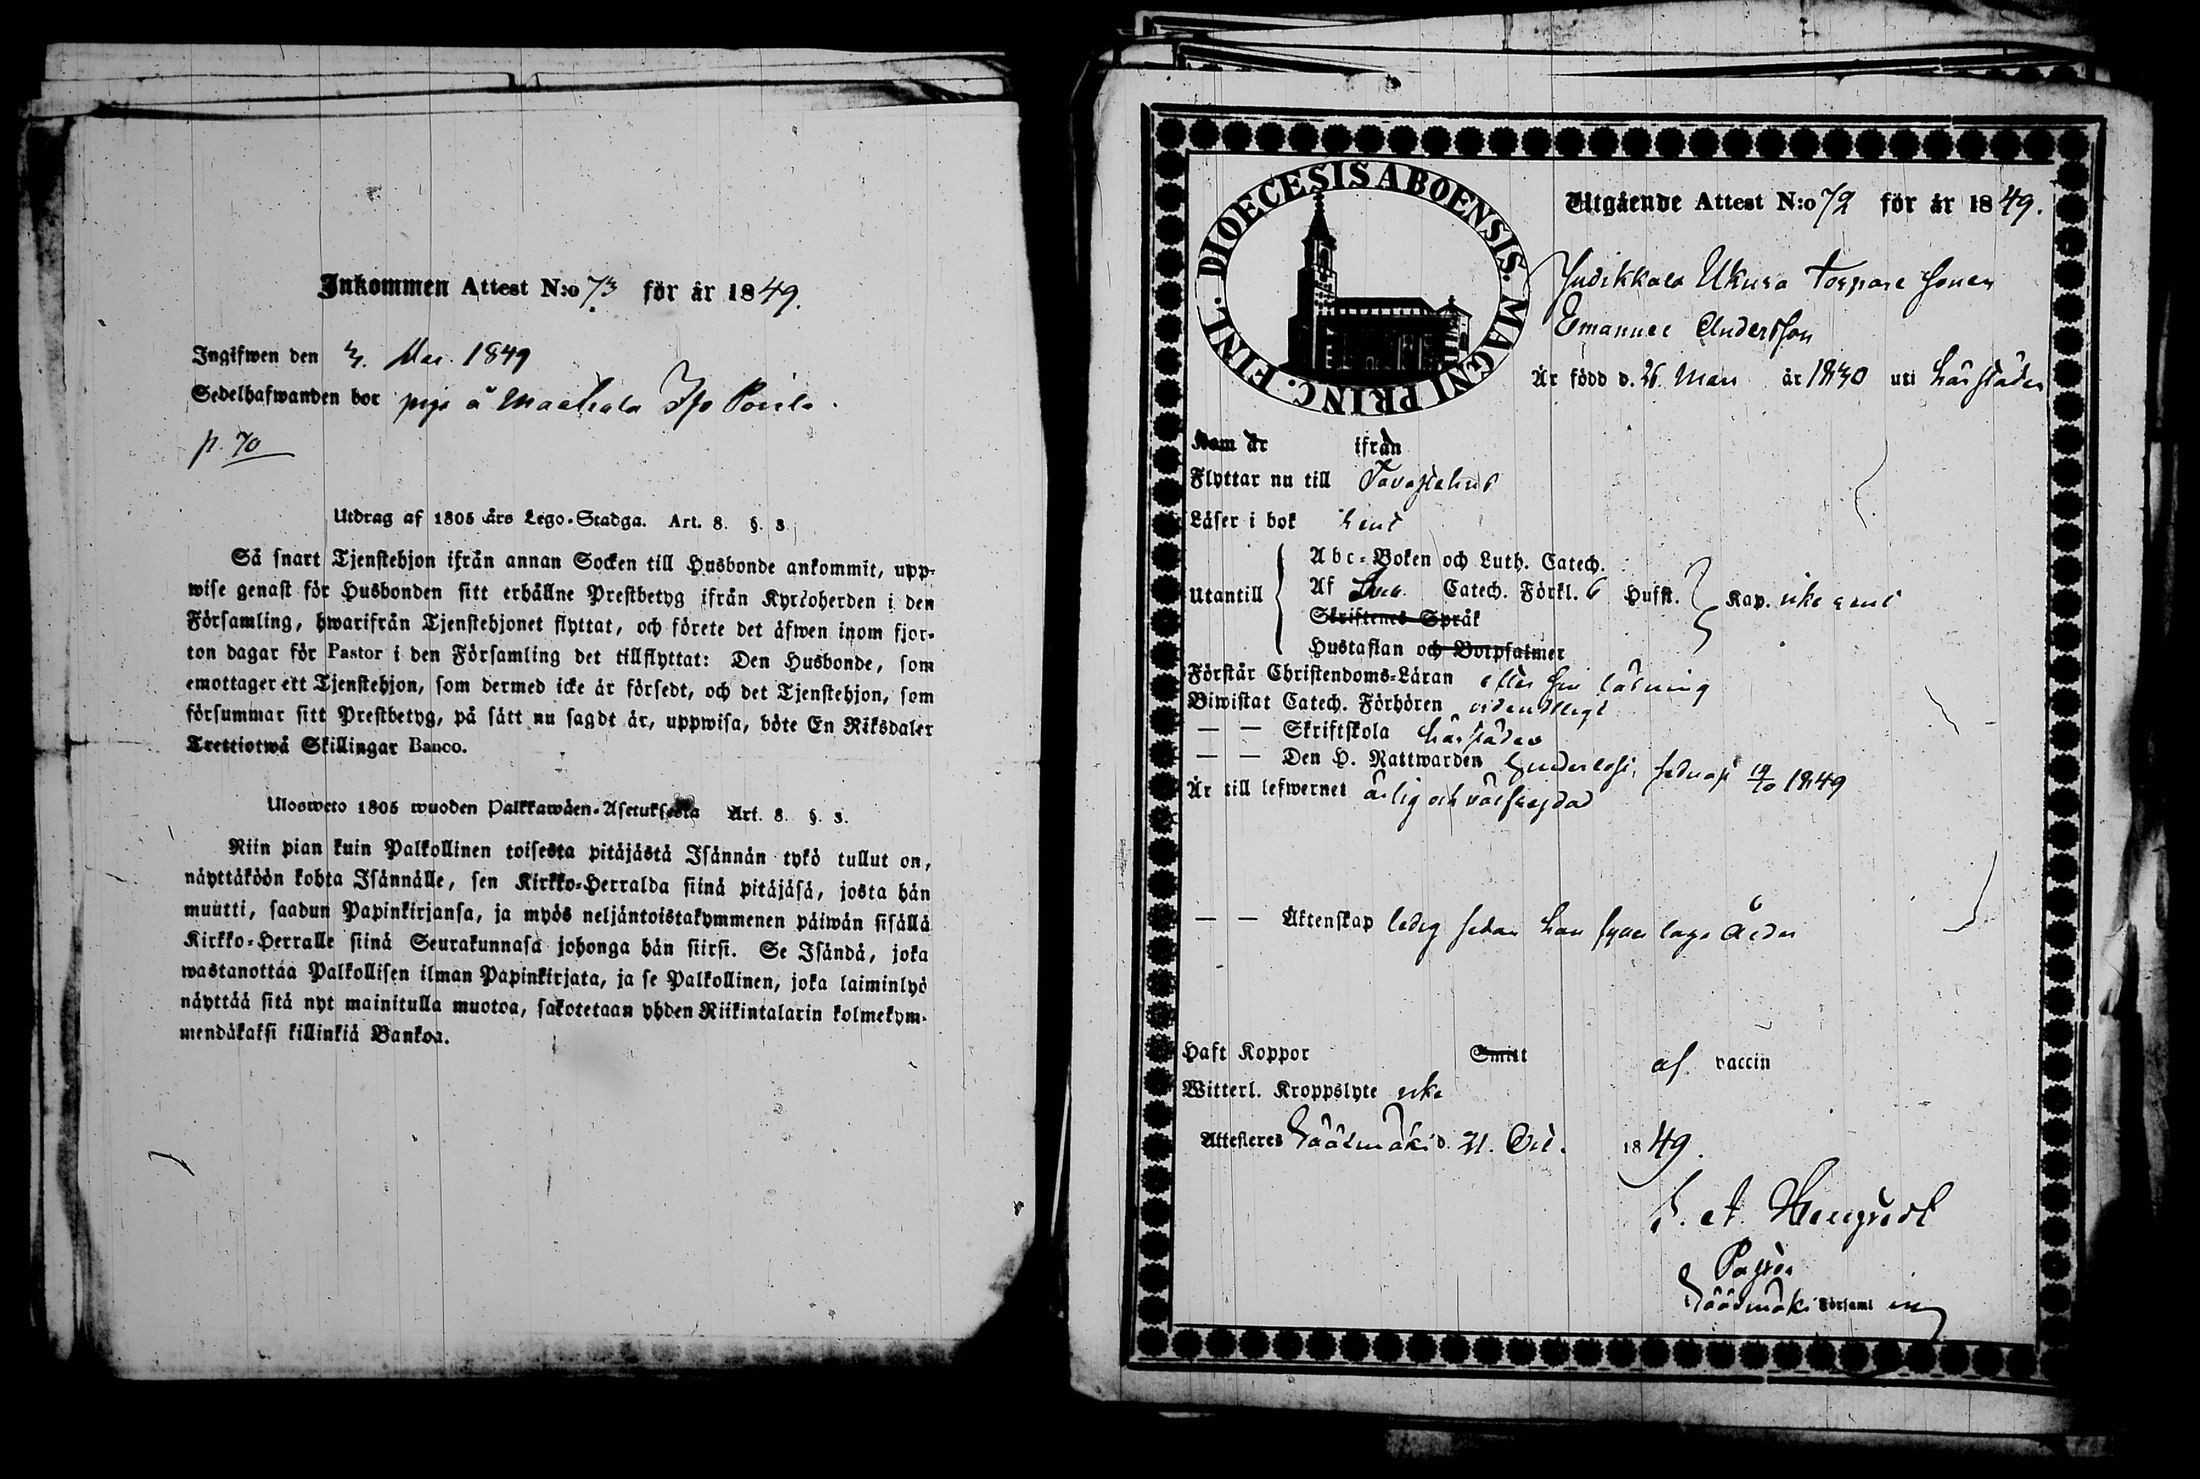 Inkommen Attest N:o 73 för år 1849.
Ingifwen den
1849
Sedelhafwanden bor
p. 70
Utdrag af 1805 års Lego-Stadga. Art. 8. §. 3.
Så snart Tjenstehjon ifrån annan Socken till Husbonde ankommit, upp-
wise genast för Husbonden sitt erhållne Prestbetyg ifrån Kyrkoherden i den
Församling, hwarifrån Tjenstehjonet flyttat, och förete det äfwen inom fjor-
ton dagar för Pastor i den Församling det tillflyttat: Den Husbonde, som
emottager ett Tjenstehjon, som dermed icke är försedt, och det Tjenstehjon, som
försummar sitt Prestbetyg, på sätt nu sagdt är, uppwisa, böte En Riksdaler
Trettiotwå Skillingar Banco.
Uloswето 1805 wuoden Palkkawäen-Asetuksesta Art. 8. §. 3.
Niin pian kuin Palkollinen toisesta pitäjästä Isännän tykö tullut on,
näyttäköön kohta Isännälle, sen Kirkko-Herralda siinä pitäjäsä, josta hän
muutti, saadun Papinkirjansa, ja myös neljäntoistakymmenen päiwän sisällä
Kirkko-Herralle siinä Seurakunnasa johonga hän siirsi. Se Isändä, joka
wastanottaa Palkollisen ilman Papinkirjata, ja se Palkollinen, joka laiminlyö
näyttää sitä nyt mainitulla muotoa, sakotetaan yhden Riikintalarin kolmekym-
mendäkaksi killinkiä Bankoa.
DIOECESIS ABOENSIS. MAGNI PRINC. FINL.
Utgående Attest N:o 72 för år 1849.
Judikkala Ukura Torpare Sonen
Emanuel Andersson
Är född d. 26 Mars år 1830 uti härstädes
Kom år ifrån
Flyttar nu till Tavastehus
Läser i bok
Utantill
Abc-Boken och Luth. Catech.
Af Catech. Förkl. 6 Hufst. Kap.
Skriftenes Språk
Hustaflan och Botpsalmer
Förstår Christendoms-Läran efter sin läsning
Biwistat Catech. Förhören ordentligt
— — Skriftskola härstädes
— — Den H. Nattwarden senast 1849
Är till lefwernet ärlig och
— — Äktenskap ledig
Haft Koppor Smitt af vaccin
Witterl. Kroppslyte icke
Attesteres Sääksmäki d. 21. Oct. 1849.
Pastor
Sääksmäki Församling